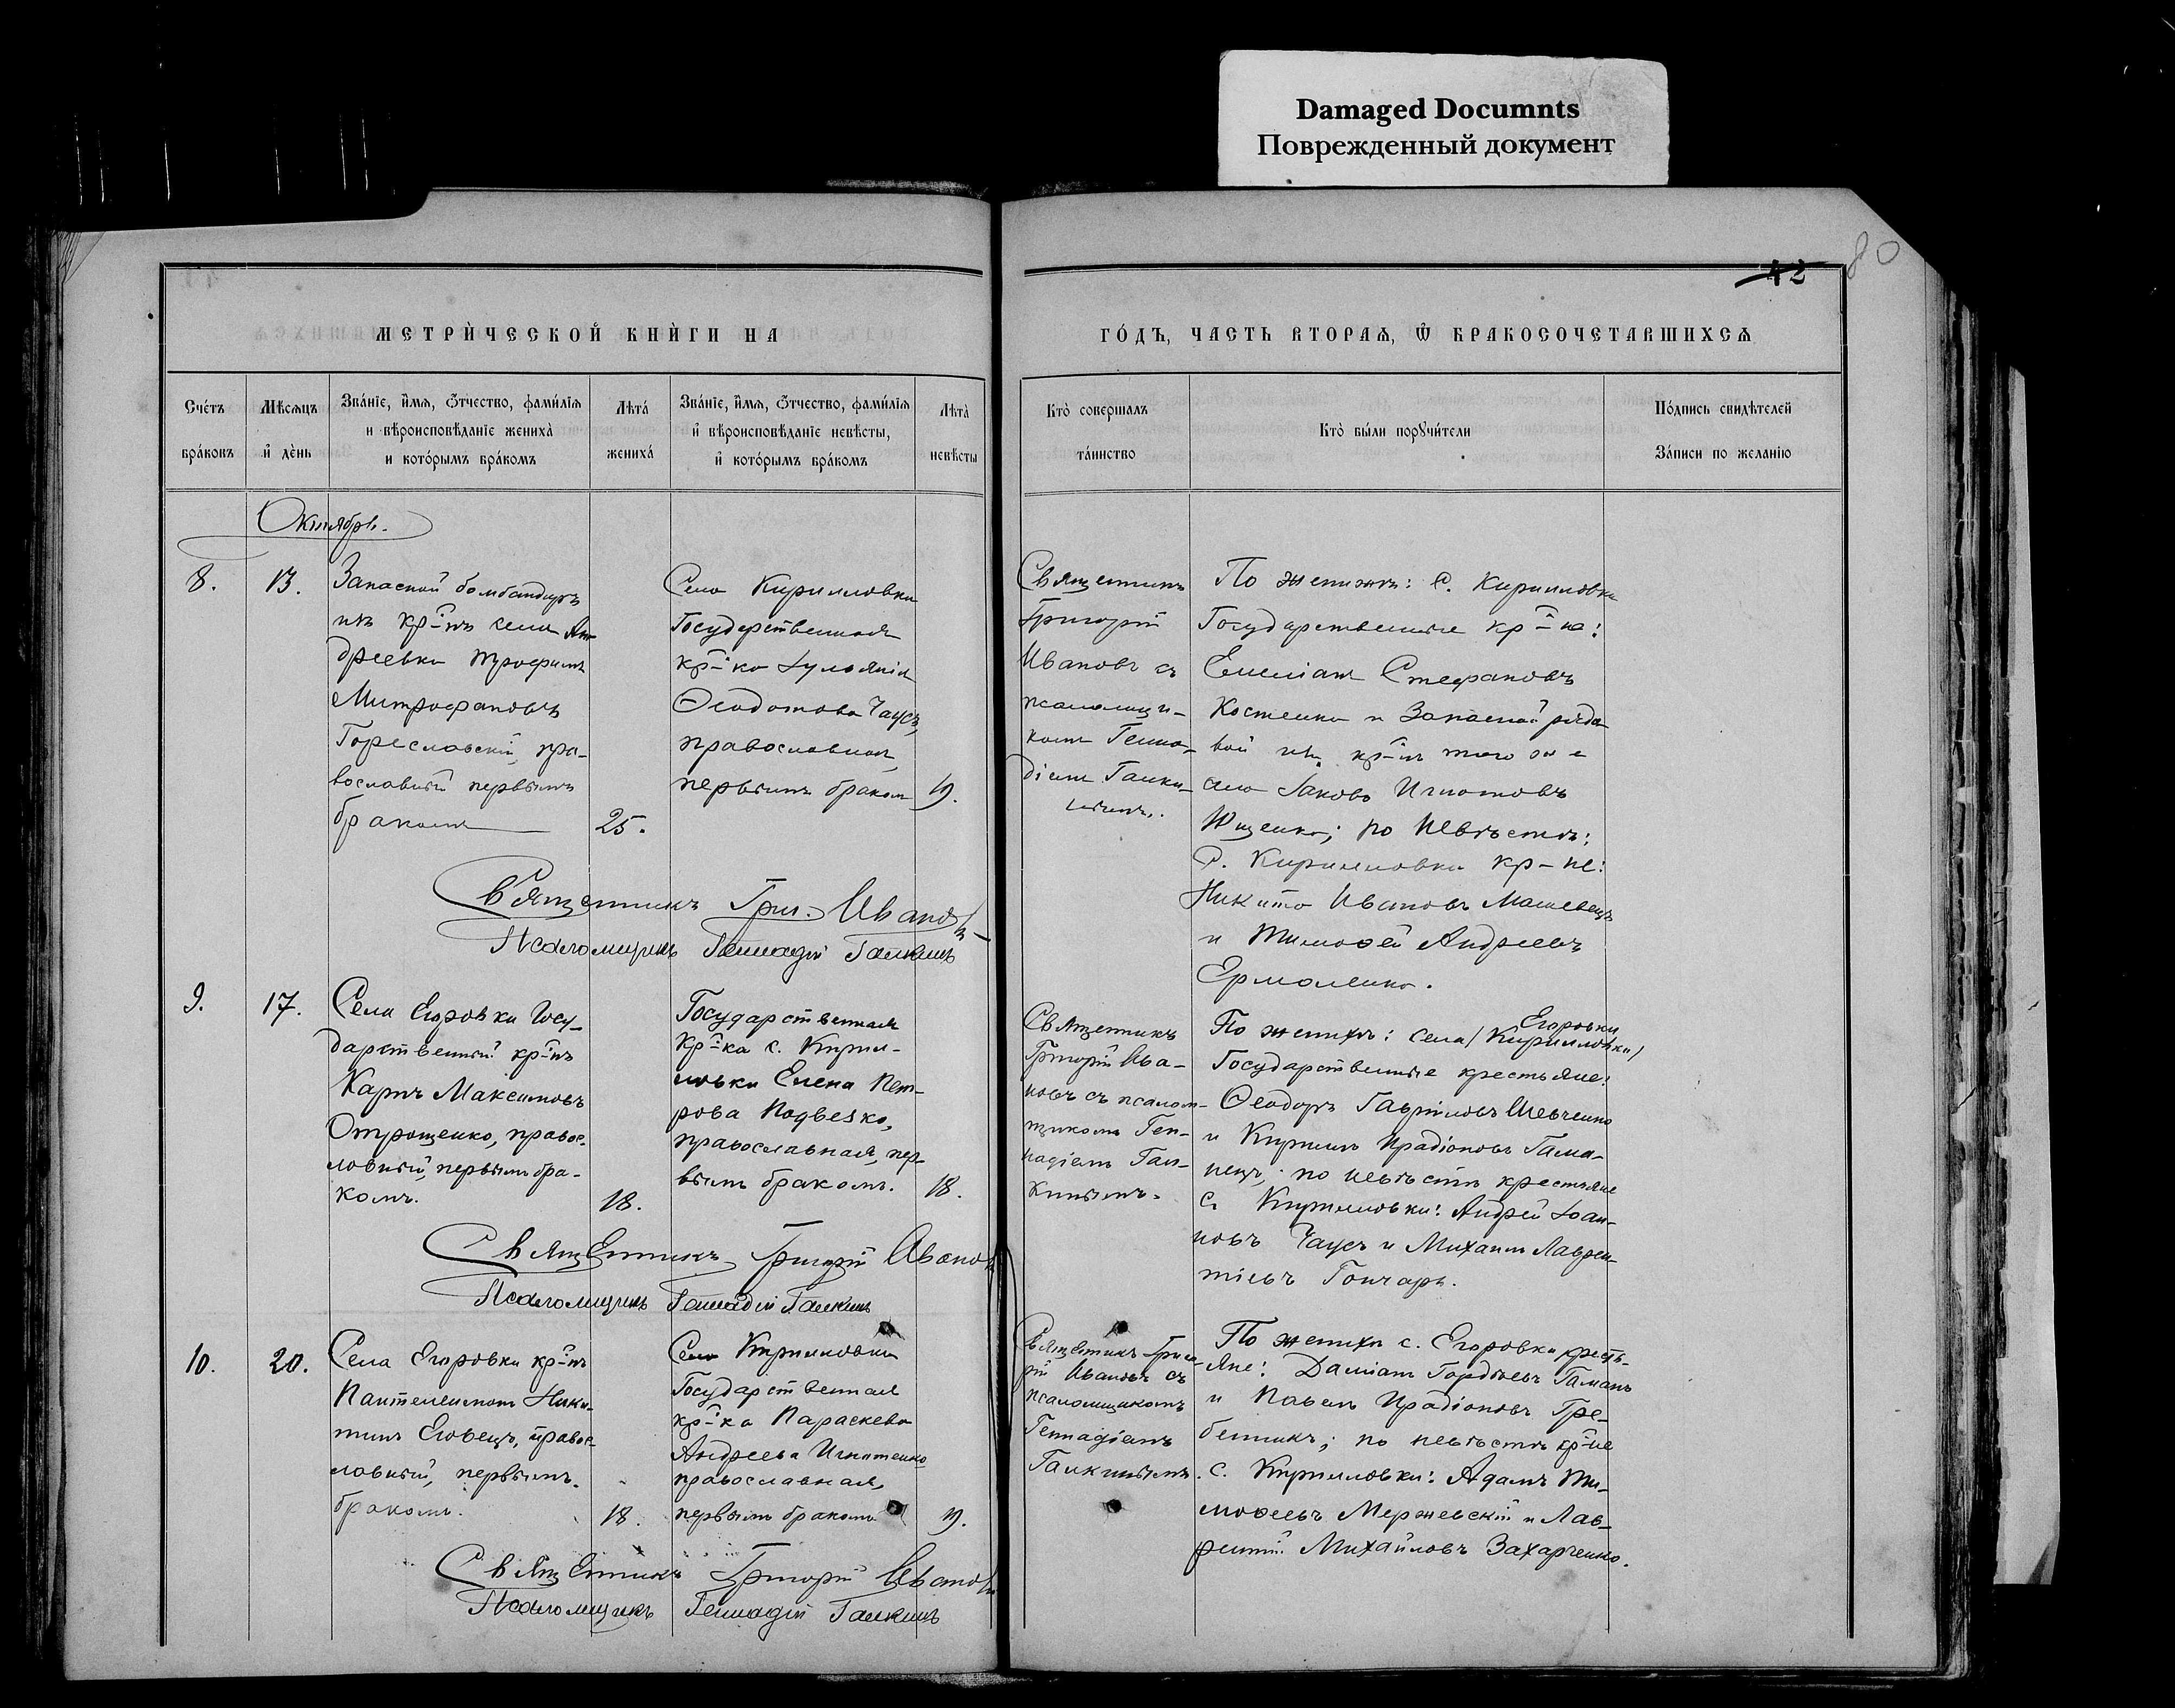 Damaged Documnts
Поврежденный документ
80
42
МЕТРИ́ЧЕСКОЙ КНИ́ГИ НА
ГО́ДЪ, ЧАСТЬ ВТОРАѦ, Ѿ БРАКОСОЧЕТАВШИХСѦ
Сче́тъ бра́ковъ
Мѣсѧцъ и҆ де́нь
Зва́нїе, и҆́мѧ, ѻ҆́тчество, фами́лїѧ
и вѣроисповѣ́данїе жениха̀
и кото́рымъ бра́комъ
Лѣта́
жениха́
Зва́нїе, и҆́мѧ, ѻ҆́тчество, фами́лїѧ
и҆ вѣроисповѣ́данїе невѣ́сты,
и҆ кото́рымъ бра́комъ
Лѣта̀
невѣ́сты
Кто̀ соверша́лъ
та́инство
Кто̀ бы́ли порꙋчи́тели
По́дпись свидѣ́телей
За́писи по жела́нїю
Октябрь.
8.
13.
Запасной бомбандиръ
изъ кр-нъ села Ан-
дреевки Трофимъ
Митрофановъ
Гореславскій, пра-
вославный первымъ
бракомъ
25.
Села Кирилловки
Государственная
кр-ка Іуліанія
Ѳеодотова Чаусъ,
православная,
первымъ бракомъ
19.
Священникъ
Григорій
Ивановъ съ
псаломщи-
комъ Генна-
діемъ Галки-
нымъ.
По женихѣ: С. Кирилловки
Государственные кр-не:
Емеліанъ Стефановъ
Костенко и Запасной рядо-
вой изъ кр-нъ того же
села Іаковъ Игнатовъ
Ищенко; по невѣстѣ:
С. Кирилловки кр-не:
Никита Ивановъ
и Тимоѳей Андреевъ
Ермоленко.
Священникъ Григ. Ивановъ
Псаломщикъ Геннадій Галкинъ
9.
17.
Села Егоровки Госу-
дарственный кр-нъ
Карпъ Максимовъ
Отрощенко, правос-
лавный, первымъ бра-
комъ.
18.
Государственная
Кр-ка с. Кирил-
ловки Елена Пет-
рова Подвезко,
православная, пер-
вымъ бракомъ.
18.
Священникъ
Григорій Ива-
новъ съ псалом-
щикомъ Ген-
надіемъ Гал-
кинымъ.
Егоровки
По женихѣ: села (Кирилловки)
Государственные крестьяне:
Ѳеодоръ Гавриловъ Шевченко
и Кириллъ Иродіоновъ Гама-
нецъ; по невѣстѣ крестьяне
с. Кирилловки: Андрей Іоан-
новъ Чаусъ и Михаилъ Лаврен-
тіевъ Гончаръ.
Священникъ Григорій Ивановъ
Псаломщикъ Геннадій Галкинъ
10.
20.
Села Егоровки кр-нъ
Пантелеимонъ Ники-
тинъ правос-
лавный, первымъ
бракомъ.
18.
Села Кирилловки
Государственная
кр-ка Параскева
Андреева Игнатенко
православная,
первымъ бракомъ
19.
Священникъ Григо-
рій Ивановъ съ
псаломщикомъ
Геннадіемъ
Галкинымъ.
По женихѣ с. Егоровки кресть-
яне: Даміанъ Гордѣевъ Гаманъ
и Павелъ Иродіоновъ Гре-
бенникъ; по невѣстѣ кр-не
с. Кирилловки: Адамъ Ти-
моѳеевъ Мержевскій и Лав-
рентій Михайловъ Захарченко.
Священникъ Григорій Ивановъ
Псаломщикъ Геннадій Галкинъ